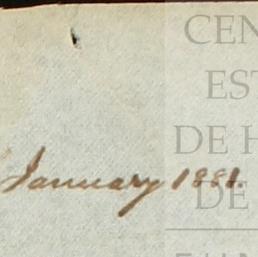 CEN
EST
DE H
January 1881.
DE